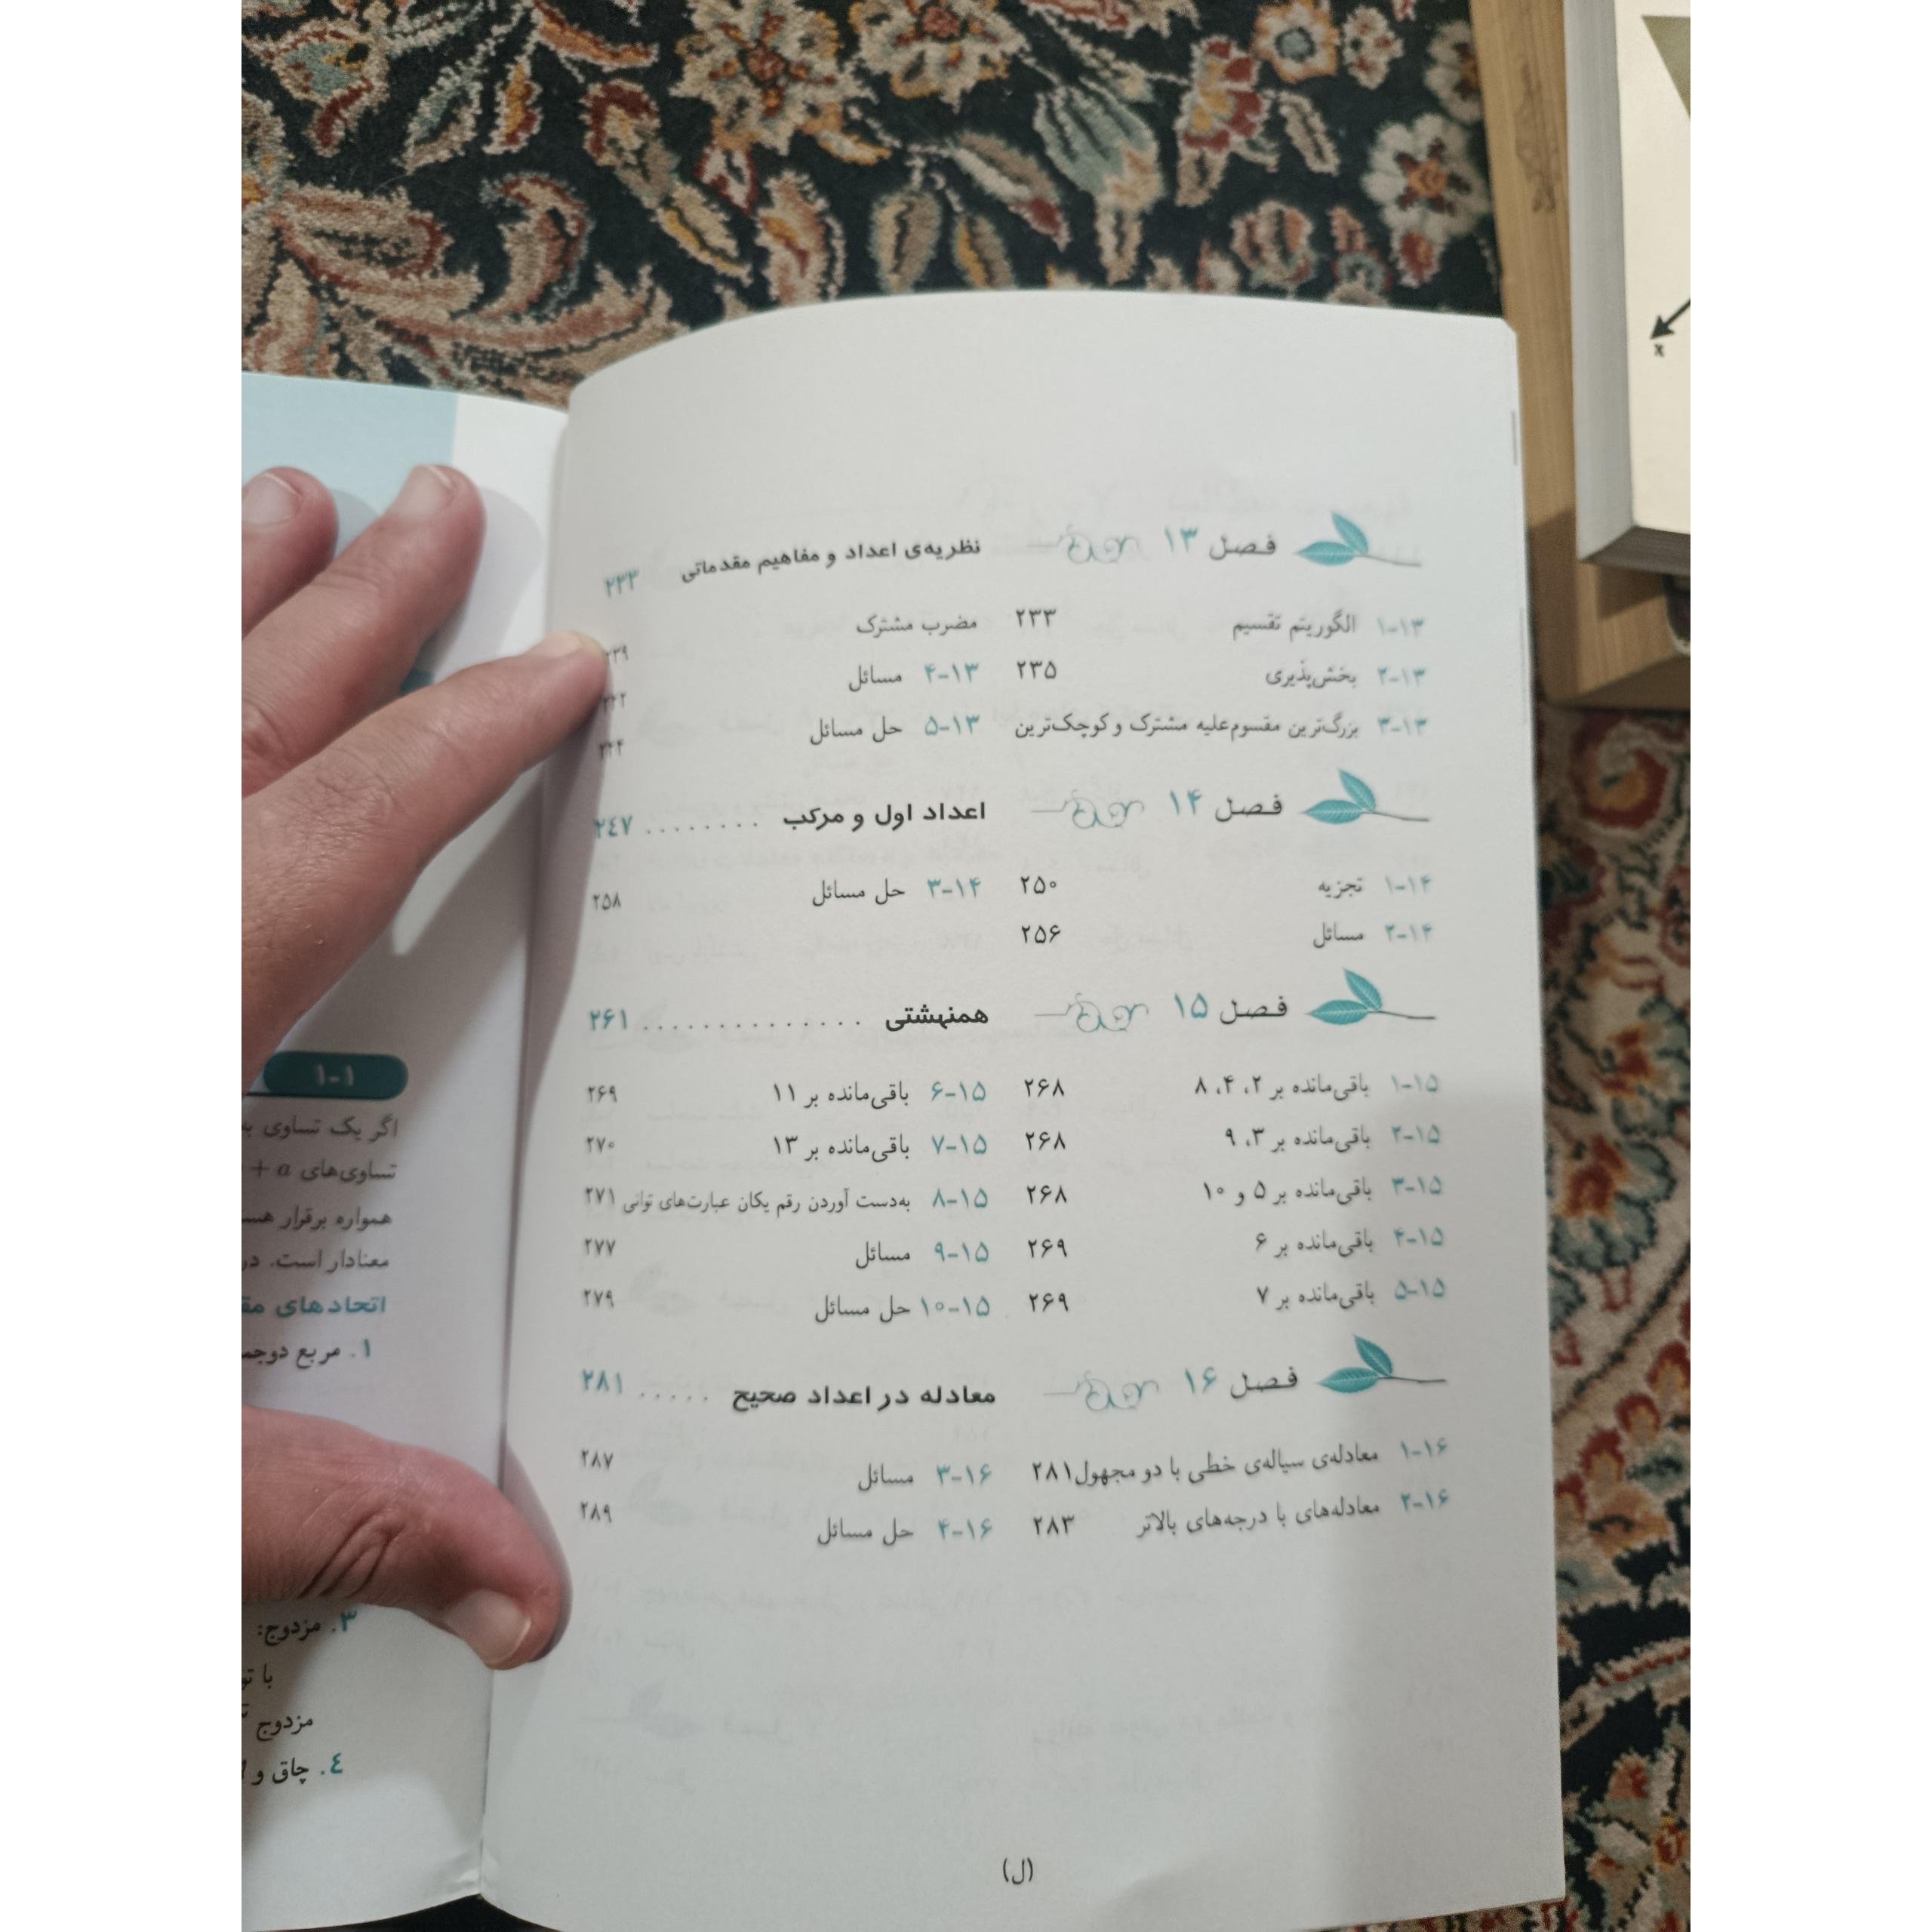 فصل ۱۳ نظریه‌ی اعداد و مفاهیم مقدماتی ۲۳۳
۱۳-۱ الگوریتم تقسیم ۲۳۳
۱۳-۲ بخش‌پذیری ۲۳۵
۱۳-۳ بزرگ‌ترین مقسوم‌علیه مشترک و کوچک‌ترین
مضرب مشترک
۱۳-۴ مسائل
۱۳-۵ حل مسائل
فصل ۱۴ اعداد اول و مرکب ........ ۲٤۷
۱۴-۱ تجزیه ۲۵۰
۱۴-۲ مسائل ۲۵۶
۱۴-۳ حل مسائل ۲۵۸
فصل ۱۵ همنهشتی .............. ۲۶۱
۱۵-۱ باقی‌مانده بر ۲، ۴، ۸ ۲۶۸
۱۵-۲ باقی‌مانده بر ۳، ۹ ۲۶۸
۱۵-۳ باقی‌مانده بر ۵ و ۱۰ ۲۶۸
۱۵-۴ باقی‌مانده بر ۶ ۲۶۹
۱۵-۵ باقی‌مانده بر ۷ ۲۶۹
۱۵-۶ باقی‌مانده بر ۱۱ ۲۶۹
۱۵-۷ باقی‌مانده بر ۱۳ ۲۷۰
۱۵-۸ به‌دست آوردن رقم یکان عبارت‌های توانی ۲۷۱
۱۵-۹ مسائل ۲۷۷
۱۵-۱۰ حل مسائل ۲۷۹
فصل ۱۶ معادله در اعداد صحیح ..... ۲۸۱
۱۶-۱ معادله‌ی سیاله‌ی خطی با دو مجهول ۲۸۱
۱۶-۲ معادله‌های با درجه‌های بالاتر ۲۸۳
۱۶-۳ مسائل ۲۸۷
۱۶-۴ حل مسائل ۲۸۹
(ل)
۱-۱
اگر یک تساوی
تساوی‌های a +
همواره برقرار
معنادار است.
اتحادهای
۱. مربع
۳. مزدوج:
با
مزدوج
٤. چاق و
x